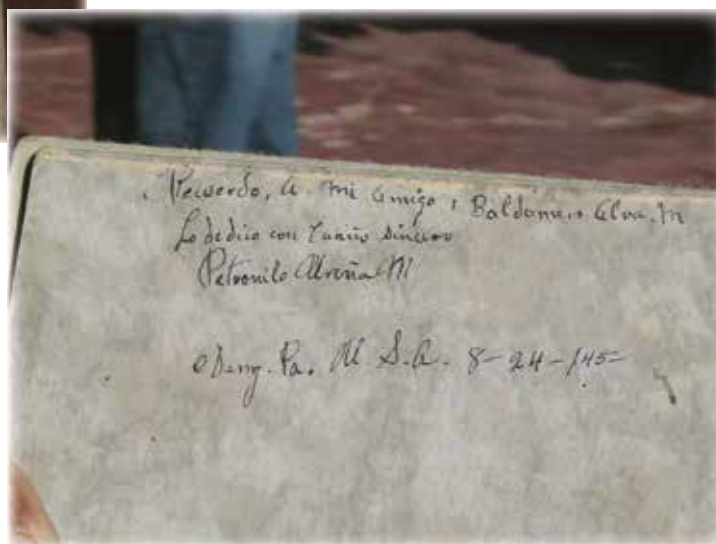 Recuerdo, a. mi amigo, Baldomero Alva. M
Lo dedico con Cariño sincero
Petronilo Ureña M
Pa. U S.A. 8-24-145-